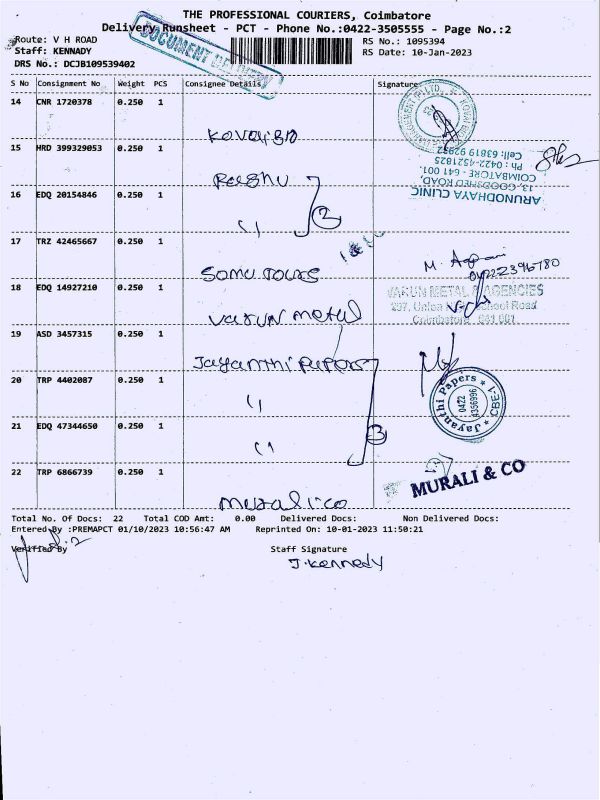 THE PROFESSIONAL COURIERS, Coimbatore
Delivery Runsheet - PCT - Phone No.:0422-3505555 - Page No.:2
DOCUMENT
Route: V H ROAD
RS No.: 1095394
Staff: KENNADY
RS Date: 10-Jan-2023
DRS No.: DCJB109539402
S No Consignment No Weight PCS Consignee Details Signature
14 CNR 1720378 0.250 1
15 HRD 399329053 0.250 1
Cell: 63819 92952
Ph : 0422-4521825
COIMBATORE - 641 001.
13, GOODSHED ROAD,
ARUNODHAYA CLINIC
16 EDQ 20154846 0.250 1
2
17 TRZ 42465667 0.250 1
Somu Tours
M.
18 EDQ 14927210 0.250 1
VARUN METAL AGENCIES
297, Union School Road
Coimbatore 641 001
Varun metal
19 ASD 3457315 0.250 1
Jayanthi Papers
20 TRP 4402087 0.250 1
Jayanthi Papers
0422
4356996
CBE-1
21 EDQ 47344650 0.250 1
3
22 TRP 6866739 0.250 1
MURALI & CO
Murali co
Total No. Of Docs: 22 Total COD Amt: 0.00 Delivered Docs: Non Delivered Docs:
Entered By :PREMAPCT 01/10/2023 10:56:47 AM Reprinted On: 10-01-2023 11:50:21
Verified By
Staff Signature
J. Kennedy